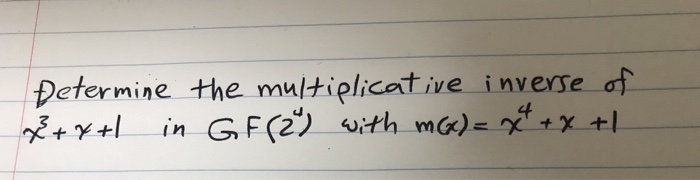 Determine the multiplicative inverse of
x³+x+1 in GF(2⁴) with m(x) = x⁴+x+1